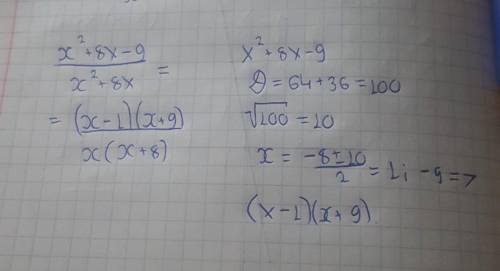 x²+8x-9 / x²+8x =
= (x-1)(x+9) / x(x+8)
x²+8x-9
D=64+36=100
√100=10
x = -8±10 / 2 = 1; -9 =>
(x-1)(x+9)